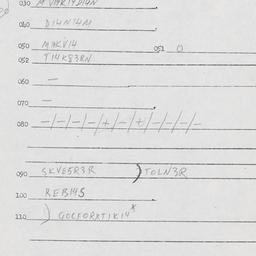 030 MVHKIYDI4N
040 DI4NI4M
050 MHKVI4 051 O
052 TI4K83RN
060 —
070 —
080 —/—/—/—/+/—/+/—/—/—/—
090 SKVE5R3R ) TOLN3R
100 REBI45
110 ) GOCFORXTIKI4*